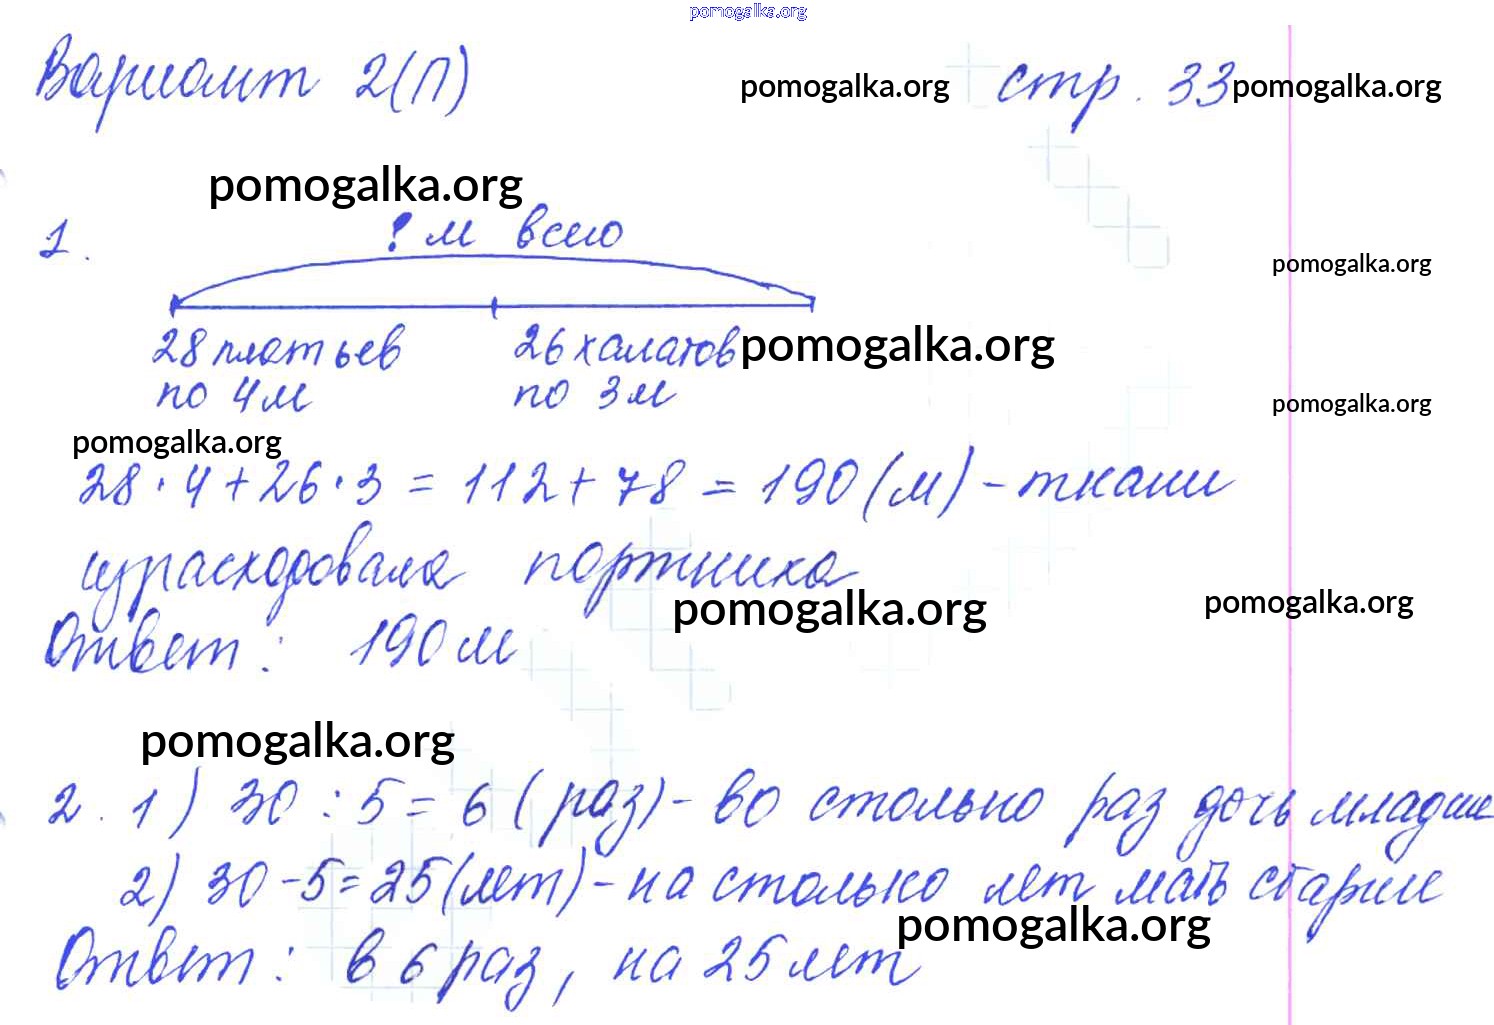 pomogalka.org
Вариант 2(П) pomogalka.org стр. 33 pomogalka.org
pomogalka.org
1. ? м всего
pomogalka.org
28 платьев 26 халатов pomogalka.org
по 4 м по 3 м
pomogalka.org
pomogalka.org
28 · 4 + 26 · 3 = 112 + 78 = 190 (м) - ткани
израсходовала портниха
pomogalka.org pomogalka.org
Ответ: 190 м
pomogalka.org
2. 1) 30 : 5 = 6 (раз) - во столько раз дочь младше
2) 30 - 5 = 25 (лет) - на столько лет мать старше
pomogalka.org
Ответ: в 6 раз, на 25 лет